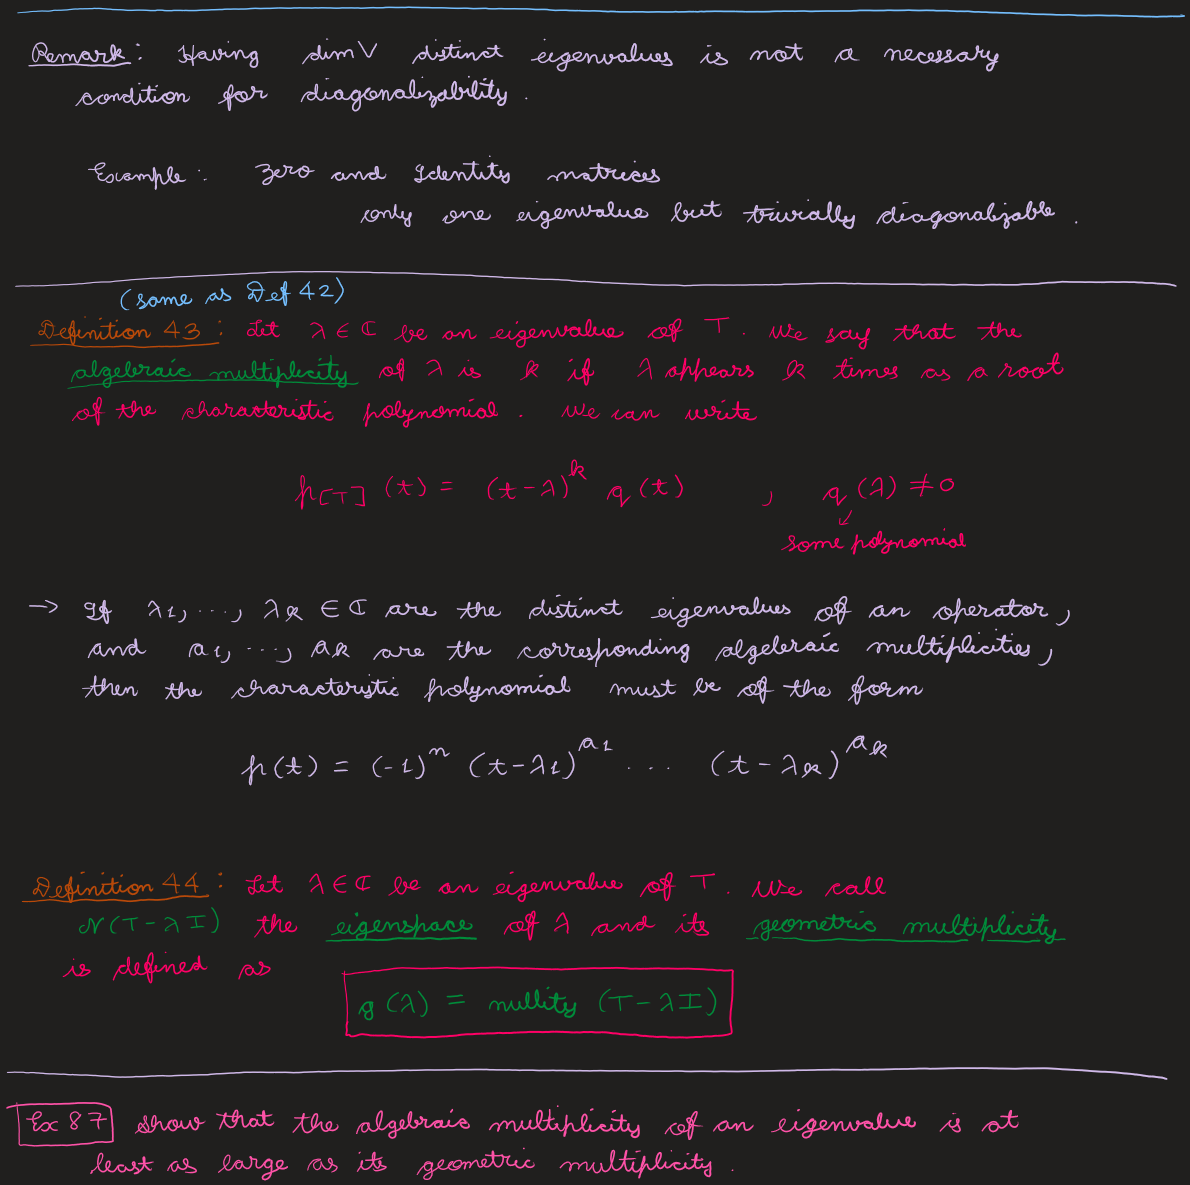 Remark: Having dim V distinct eigenvalues is not a necessary
condition for diagonalizability.
Example: Zero and Identity matrices
only one eigenvalue but trivially diagonalizable.
(same as Def 42)
Definition 43: Let λ ∈ ℂ be an eigenvalue of T. We say that the
algebraic multiplicity of λ is k if λ appears k times as a root
of the characteristic polynomial. We can write
p[T](t) = (t-λ)^k q(t) , q(λ) ≠ 0
some polynomial
→ If λ1, ..., λk ∈ ℂ are the distinct eigenvalues of an operator,
and a1, ..., ak are the corresponding algebraic multiplicities,
then the characteristic polynomial must be of the form
p(t) = (-1)^n (t-λ1)^a1 ... (t-λk)^ak
Definition 44: Let λ ∈ ℂ be an eigenvalue of T. We call
N(T-λI) the eigenspace of λ and its geometric multiplicity
is defined as
g(λ) = nullity (T-λI)
Ex 87 Show that the algebraic multiplicity of an eigenvalue is at
least as large as its geometric multiplicity.